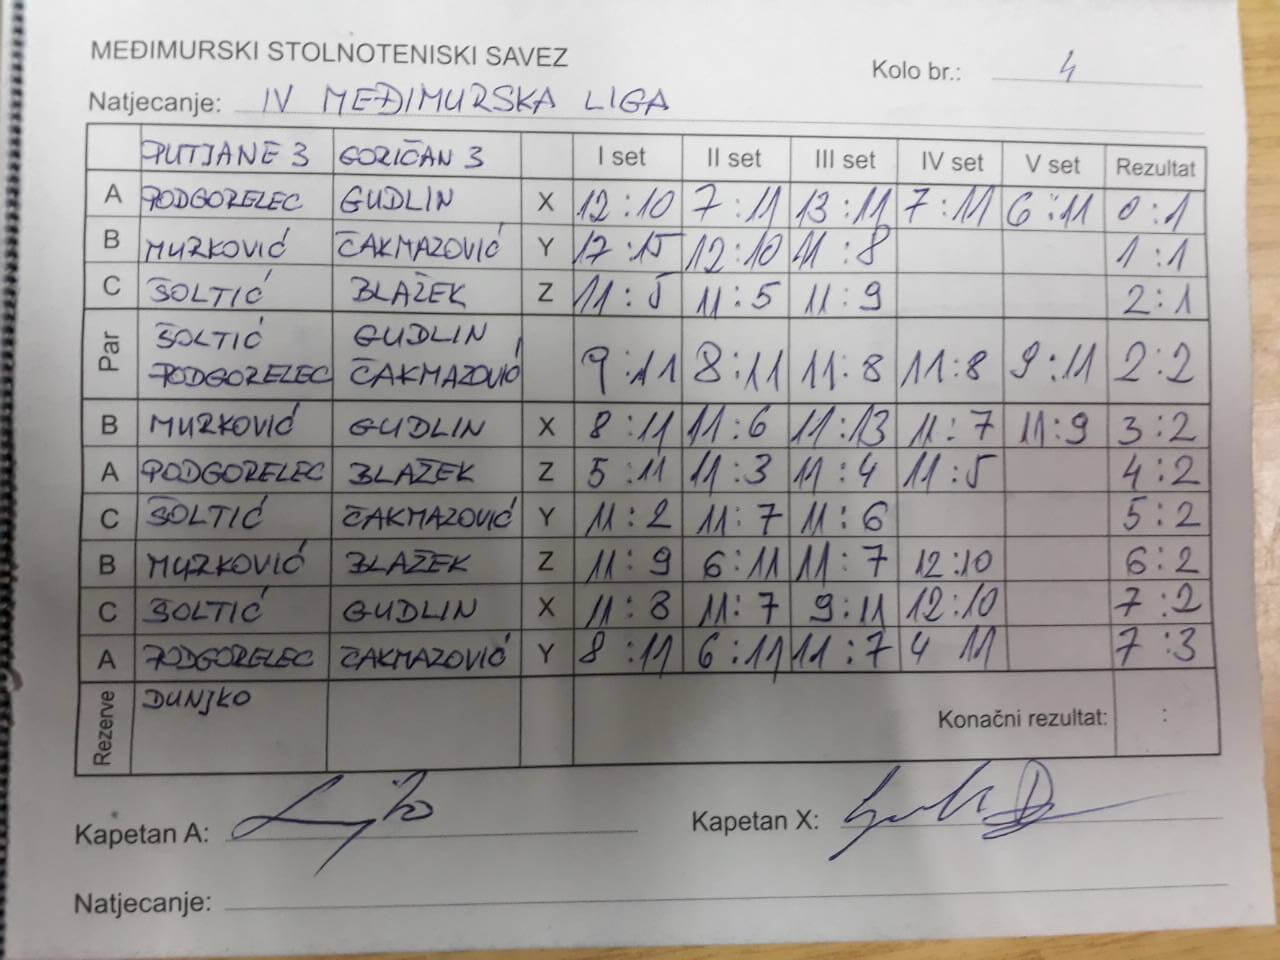 MEĐIMURSKI STOLNOTENISKI SAVEZ
Kolo br.: 4
Natjecanje: IV MEĐIMURSKA LIGA
PUTJANE 3 GORIČAN 3 I set II set III set IV set V set Rezultat
A PODGORELEC GUDLIN X 12:10 7:11 13:11 7:11 6:11 0:1
B MURKOVIĆ ČAKMAZOVIĆ Y 17:15 12:10 11:8 1:1
C ŠOLTIĆ BLAŽEK Z 11:5 11:5 11:9 2:1
Par ŠOLTIĆ GUDLIN
PODGORELEC ČAKMAZOVIĆ 9:11 8:11 11:8 11:8 9:11 2:2
B MURKOVIĆ GUDLIN X 8:11 11:6 11:13 11:7 11:9 3:2
A PODGORELEC BLAŽEK Z 5:11 11:3 11:4 11:5 4:2
C ŠOLTIĆ ČAKMAZOVIĆ Y 11:2 11:7 11:6 5:2
B MURKOVIĆ BLAŽEK Z 11:9 6:11 11:7 12:10 6:2
C ŠOLTIĆ GUDLIN X 11:8 11:7 9:11 12:10 7:2
A PODGORELEC ČAKMAZOVIĆ Y 8:11 6:11 11:7 4 11 7:3
Rezerve DUNJKO
Konačni rezultat: :
Kapetan A:
Kapetan X:
Natjecanje: